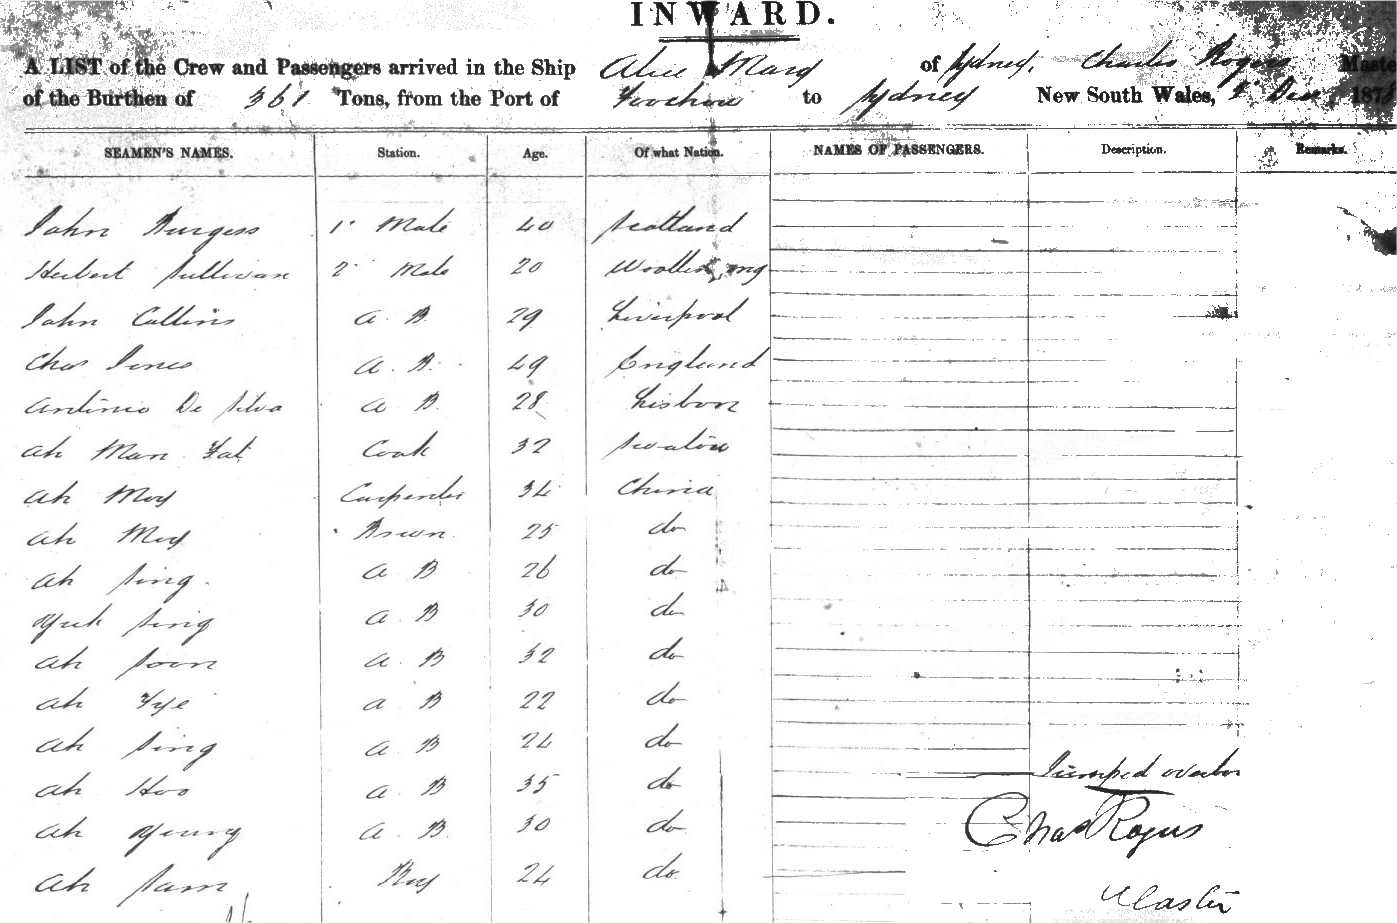 INWARD.
A LIST of the Crew and Passengers arrived in the Ship Alice Mary of Sydney, Charles Rogers Maste
of the Burthen of 361 Tons, from the Port of Foochow to Sydney New South Wales, Dec 187
SEAMEN'S NAMES. Station. Age. Of what Nation. NAMES OF PASSENGERS. Description. Remarks.
John Burgess 1 Mate 40 Scotland
Herbert Sullivan 2 Mate 20
John Collins A. B. 29 Liverpool
Chas Jones A. B. 49 England
Antonio De Silva A B. 28 Lisbon
Ah Man Fat Cook 32
Ah Moy Carpenter 34 China
Ah Moy 25 do
Ah Sing A B 26 do
Yuk Sing A B 30 do
Ah Soon A. B. 32 do
Ah Tye A B 22 do
Ah Sing A B 24 do Jumped overbo
Ah Hoo A. B 35 do
Ah Young A. B. 30 do Chas Rogers
Ah Sam Boy 24 do. Master